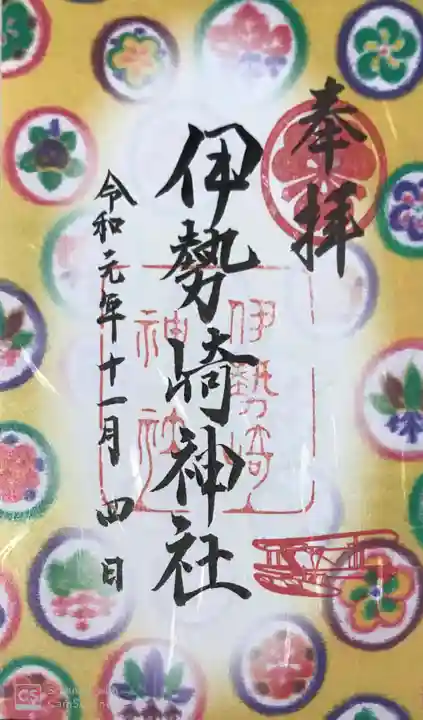 奉拝
伊勢崎神社
伊勢崎
神社
令和元年十一月四日
CS
CamScanner